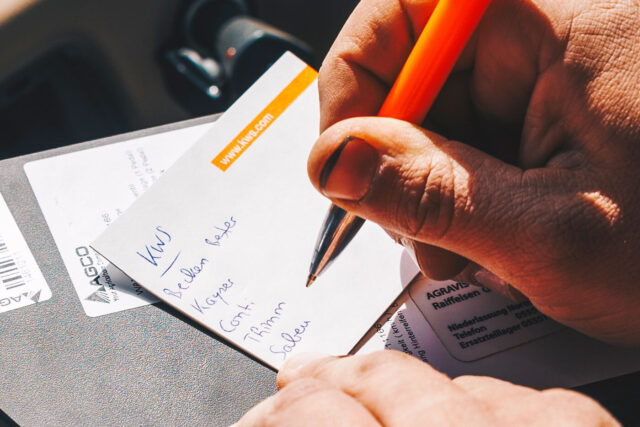 www.kws.com
KWS
Becker Beter
Kayser
Conti
Thimm
Saben
AGCO
AGRAVIS
Raiffeisen
Niederlassung
Telefon 0555
Ersatzteillager 055